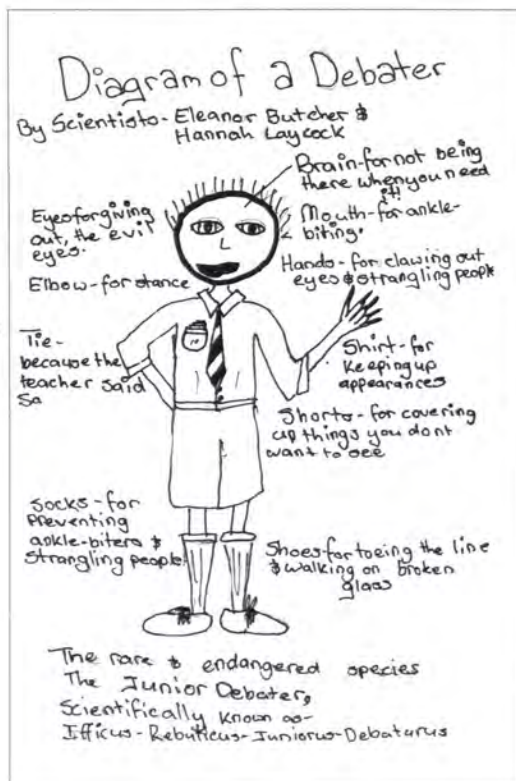 Diagram of a Debater
By Scientists - Eleanor Butcher &
Hannah Laycock
Brain - for not being
there when you need
it!
Eyes for giving
out, the evil
eyes.
Mouth - for ankle-
biting.
Elbow - for stance
Hands - for clawing out
eyes & strangling people
Tie -
because the
teacher said
So
Shirt - for
keeping up
appearances
Shorts - for covering
up things you dont
want to see
Socks - for
preventing
ankle-biters &
strangling people!
Shoes - for toeing the line
& walking on broken
glass
The rare & endangered species
The Junior Debater,
Scientifically known as -
Ifficus - Rebuticus - Juniorus - Debaturus